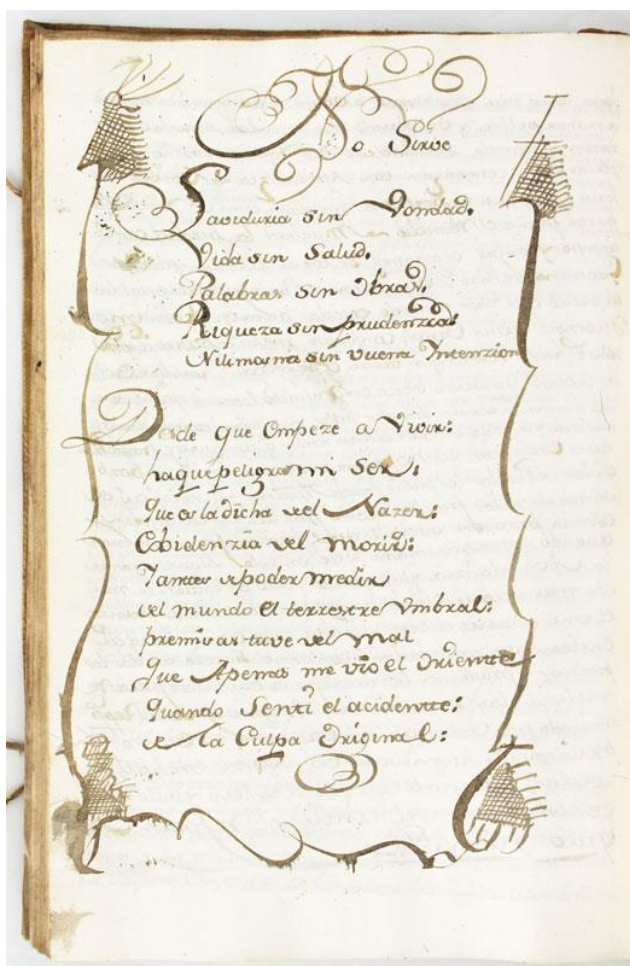 No Sirve
Saviduria sin Vondad.
Vida sin Salud.
Palabras sin Obras.
Riqueza sin prudenzia.
Nilimosna sin vuena Intenzion
Desde que Empeze a Vivir:
ha que peligra mi Ser:
Que es la dicha del Nazer:
Ebidenzia del morir:
Iantes de poder medir
del mundo el terrestre Vmbral:
premisas tuve del mal
que Apenas me vio el Oriente
quando Senti el acidentte:
de la Culpa Original: